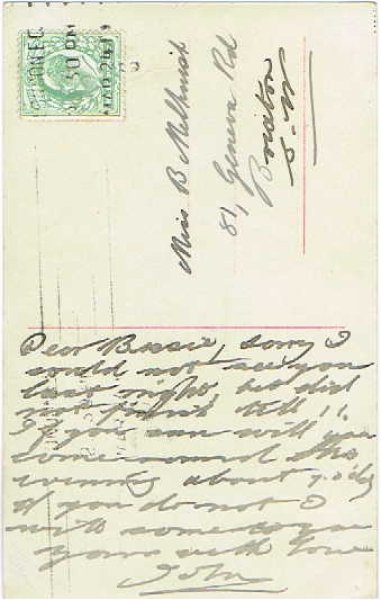 Miss B Melhuish
81, Geneva Rd
Brixton
S. W
Dear Bessie, sorry I
could not see you
last night, but did
not finish till 11.
If you can will you
come round this
evening about 7.
if you do not I
will come to you
yours with love
John